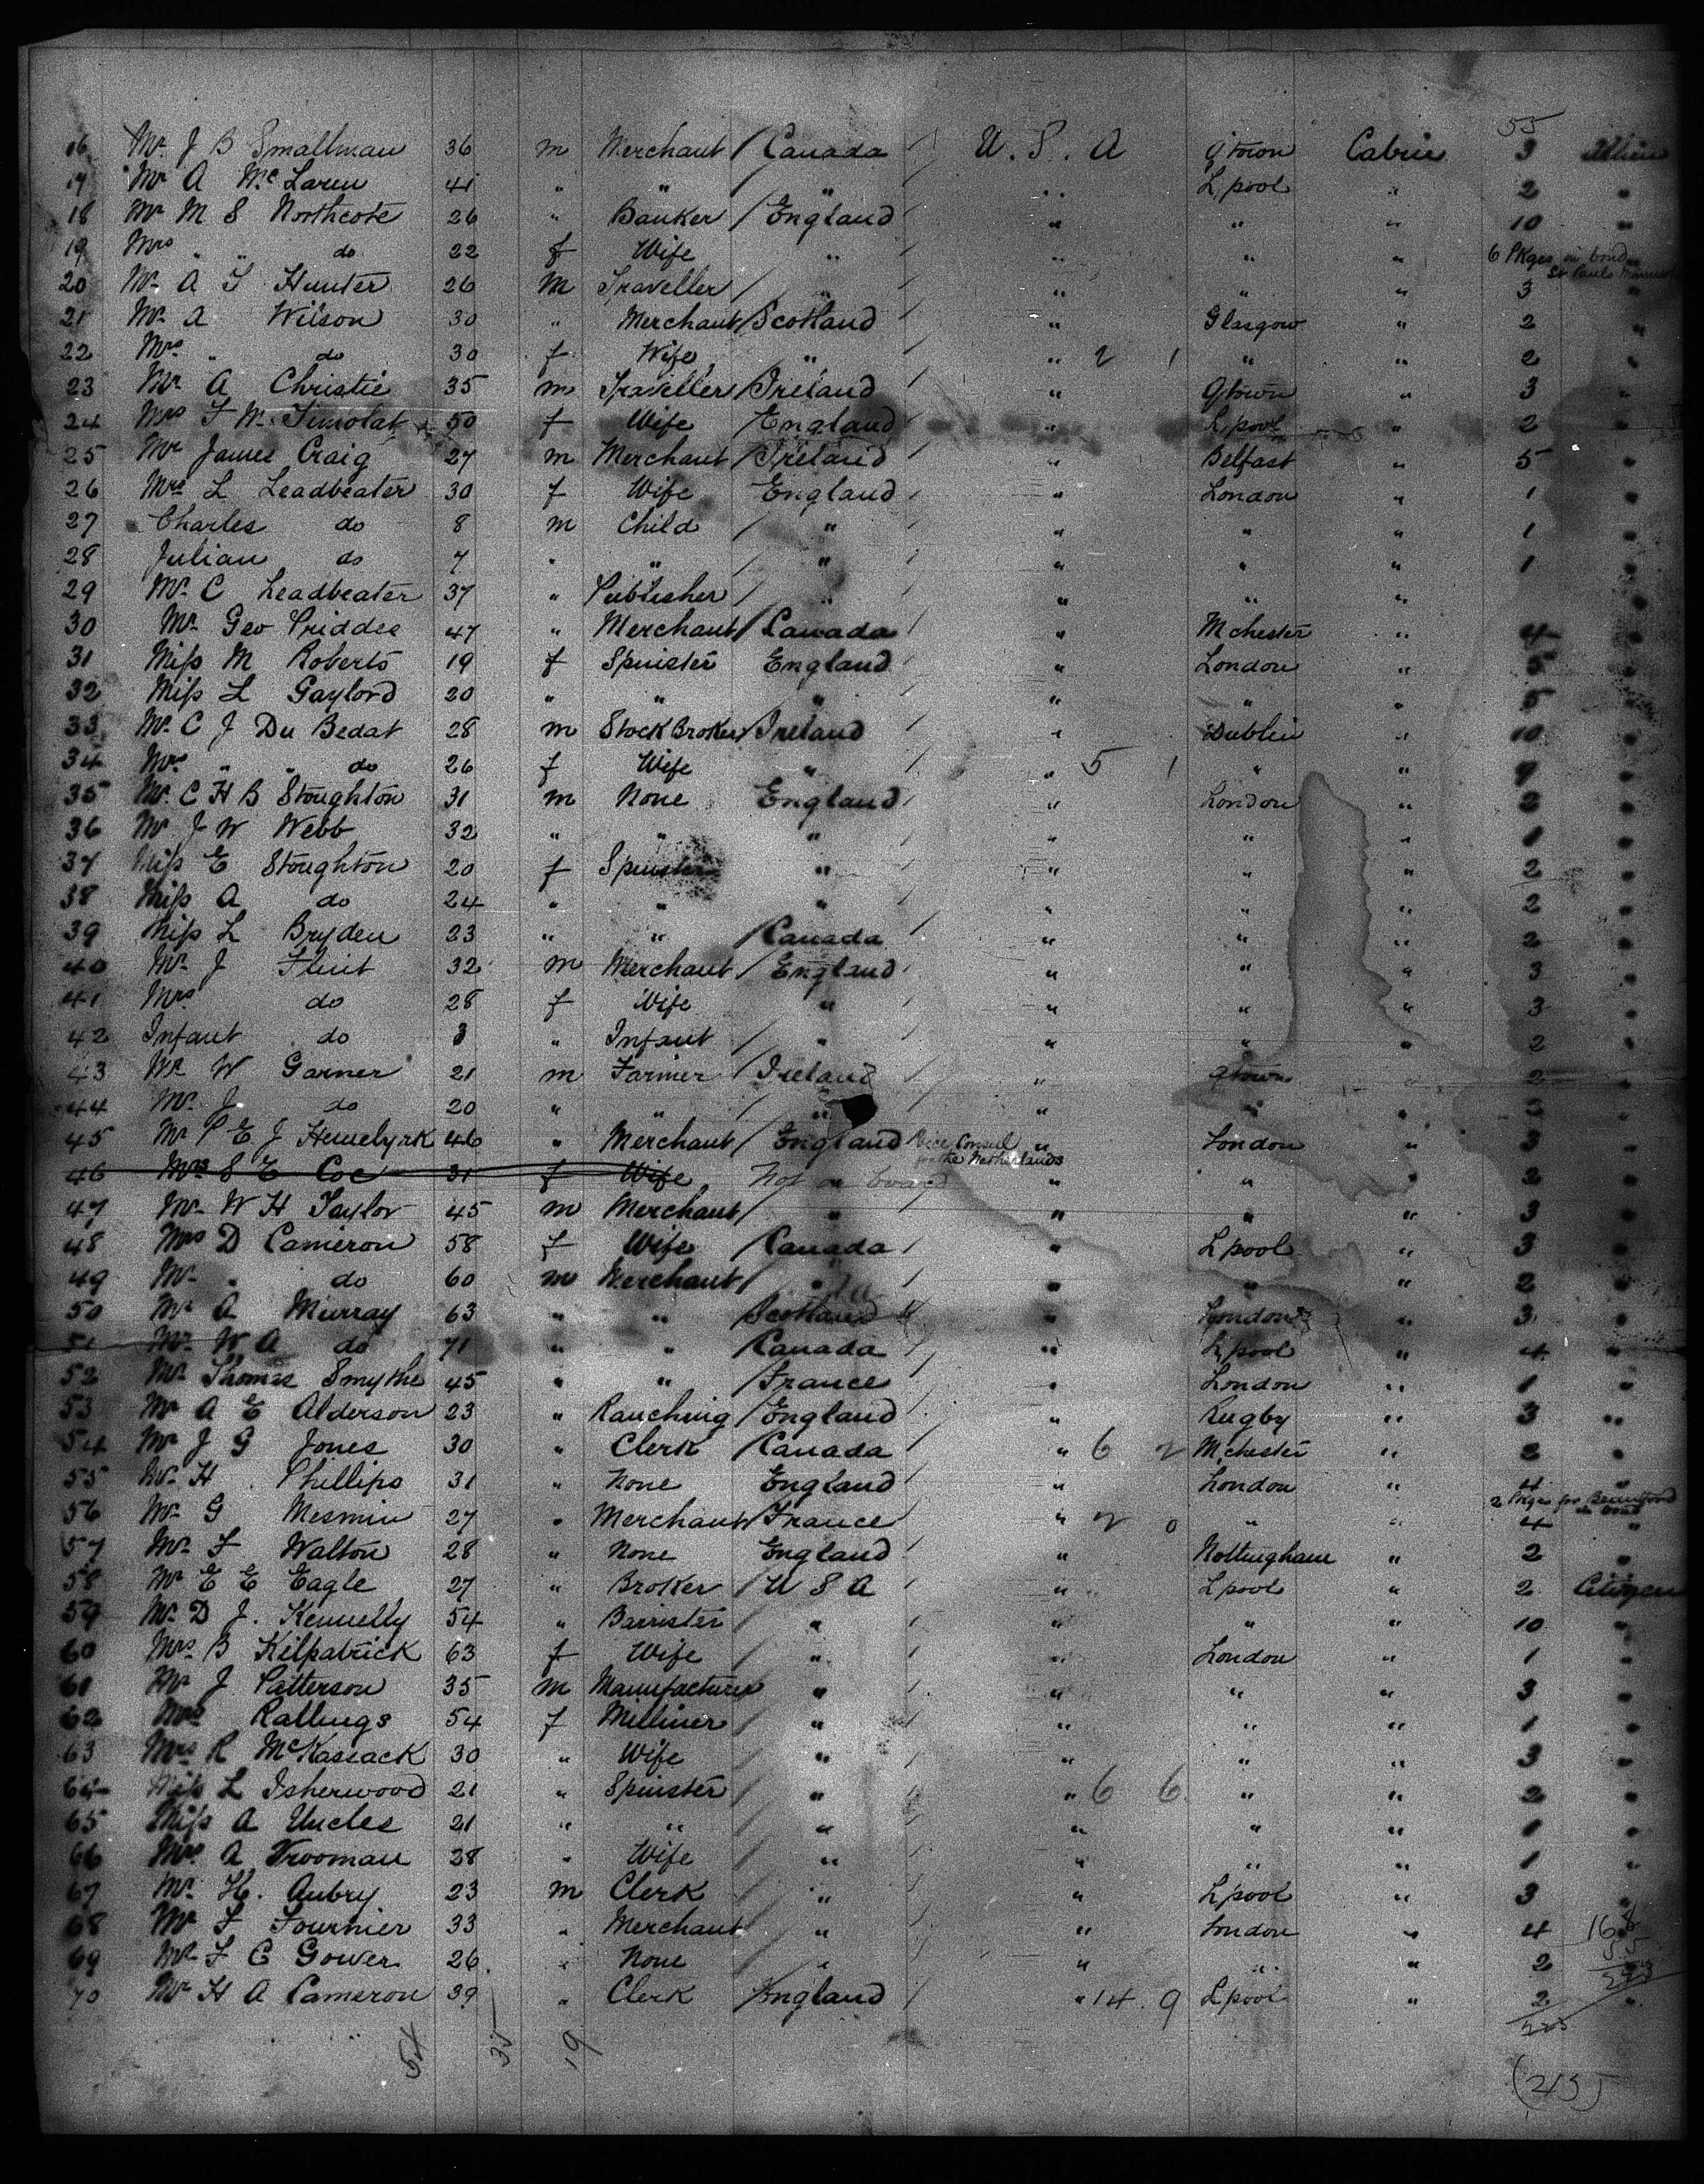 55
16 Mr. J B Smallman 36 m Merchant / Canada / U. S. A Qtown Cabin 3 Alien
17 Mr A McLaren 41 " " / " / " L,pool " 2 "
18 Mr M S Northcote 26 " Banker / England / " " " 10 "
19 Mrs " " do 22 f Wife " " " " 6 Pkges in bond St Pauls
20 Mr A T Hunter 26 m Traveller / " / " " " 3 "
21 Mr A Wilson 30 " Merchant / Scotland / " Glasgow " 2 "
22 Mrs " do 30 f Wife " / " 2 1 " " 2 "
23 Mr A Christie 35 m Traveller / Ireland " Qtown " 3 "
24 Mrs F W. Timolat 50 f Wife / England " L,pool " 2 "
25 Mr James Craig 27 m Merchant / Ireland " Belfast " 5 "
26 Mrs L Leadbeater 30 f Wife England / " London " 1 "
27 Charles do 8 m Child / " / " " " 1 "
28 Julian do 7 " " / " / " " " 1 "
29 Mr C Leadbeater 37 " Publisher / " / " " "
30 Mr Geo Priddee 47 " Merchant / Canada / " Mchester " 4 "
31 Miss M Roberts 19 f Spinster England / " London " 5 "
32 Miss L Gaylord 20 " " " " " " 5 "
33 Mr. C J Du Bedat 28 m Stock Broker / Ireland / " Dublin " 10 "
34 Mrs " " do 26 f Wife " / " 5 1 " " 7 "
35 Mr. C H B Stoughton 31 m None England / " London " 2 "
36 Mr J W Webb 32 " " " " " " 1 "
37 Miss E Stoughton 20 f Spinster " " " " 2 "
38 Miss A do 24 " " " / " " " 2 "
39 Miss L Bryden 23 " " / Canada / " " " 2 "
40 Mr. J Flint 32 m Merchant / England / " " " 3 "
41 Mrs do 28 f Wife " / " " " 3 "
42 Infant do 3 " Infant / " / " " " 2 "
43 Mr W Garner 21 m Farmer / Ireland " Qtown 2 "
44 Mr. J do 20 " " / " " " " 2 "
45 Mr P E J Hemelyrk 46 " Merchant / England Vice Consul for the Netherlands " London " 3 "
46 Mrs S E Coe 31 f Wife Not on board " " " 2 "
47 Mr. W H Taylor 45 m Merchant / " / " " " 3 "
48 Mrs D Cameron 58 f Wife / Canada / " L pool " 3 "
49 Mr. " do 60 m Merchant / " / " " " 2 "
50 Mr A Murray 63 " " Scotland " London " 3 "
51 Mr. W A do 71 " " / Canada / " L,pool " 4 "
52 Mr. Thomas Smythe 45 " " / France / " London " 1 "
53 Mr A E Alderson 23 " Ranching / England / " Rugby " 3 "
54 Mr J G Jones 30 " Clerk / Canada / " 6 2 Mchester " 2 "
55 Mr. H. Phillips 31 " None England / " London " 4 "
56 Mr. G Mesmin 27 " Merchant / France / " 2 0 " " 2 Pkges for in bond 4 "
57 Mr. F Walton 28 " None England " Nottingham " 2 "
58 Mr E E Eagle 27 " Broker / U S A / " L pool " 2 Citizen
59 Mr. D J. Kennelly 54 " Barrister / " / " " " 10 "
60 Mrs. B Kilpatrick 63 f Wife / " / " London " 1 "
61 Mr J Patterson 35 m Manufacturer " / " " " 3 "
62 Mrs Rallings 54 f Milliner / " / " " " 1 "
63 Mrs R McKassack 30 " Wife / " / " " " 3 "
64 Miss L Isherwood 21 " Spinster / " / " 6 6 " " 2 "
65 Miss A Uncles 21 " " / " / " " " 1 "
66 Mrs. A Vrooman 28 " Wife / " / " " " 1 "
67 Mr. H. Aubry 23 m Clerk / " / " L'pool " 3 "
68 Mr F Fournier 33 " Merchant " / " London " 4 "
69 Mr F C Gower 26. " None " / " " " 2 "
70 Mr H A Cameron 39 " Clerk / England / " 14. 9 L'pool " 2 "
54 35 19
(213)